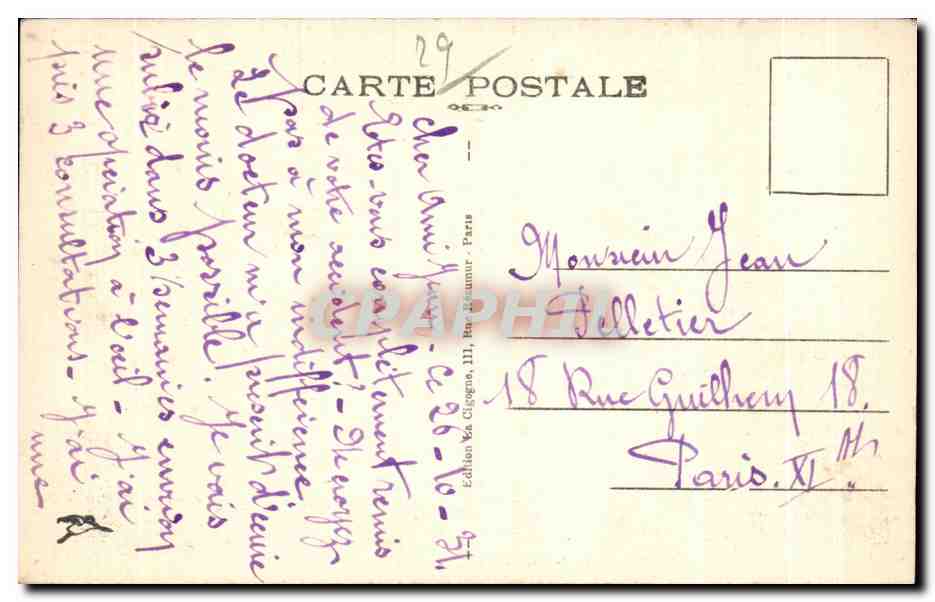 29
CARTE POSTALE
cher Ami Jean - ce 26-10-31.
Etes-vous complètement remis
de votre accident? - Ne croyez
pas à mon indifférence
Le docteur m'a prescrit d'écrire
le moins possible. Je vais
subir dans 3 semaines environ
une opération à l'oeil - J'ai
pris 3 consultations - J'ai
une
Edition La Cigogne, 111, Rue Réaumur - Paris
CPAPHIL
Monsieur Jean
Pelletier
18 Rue Guilhem 18.
Paris. XI